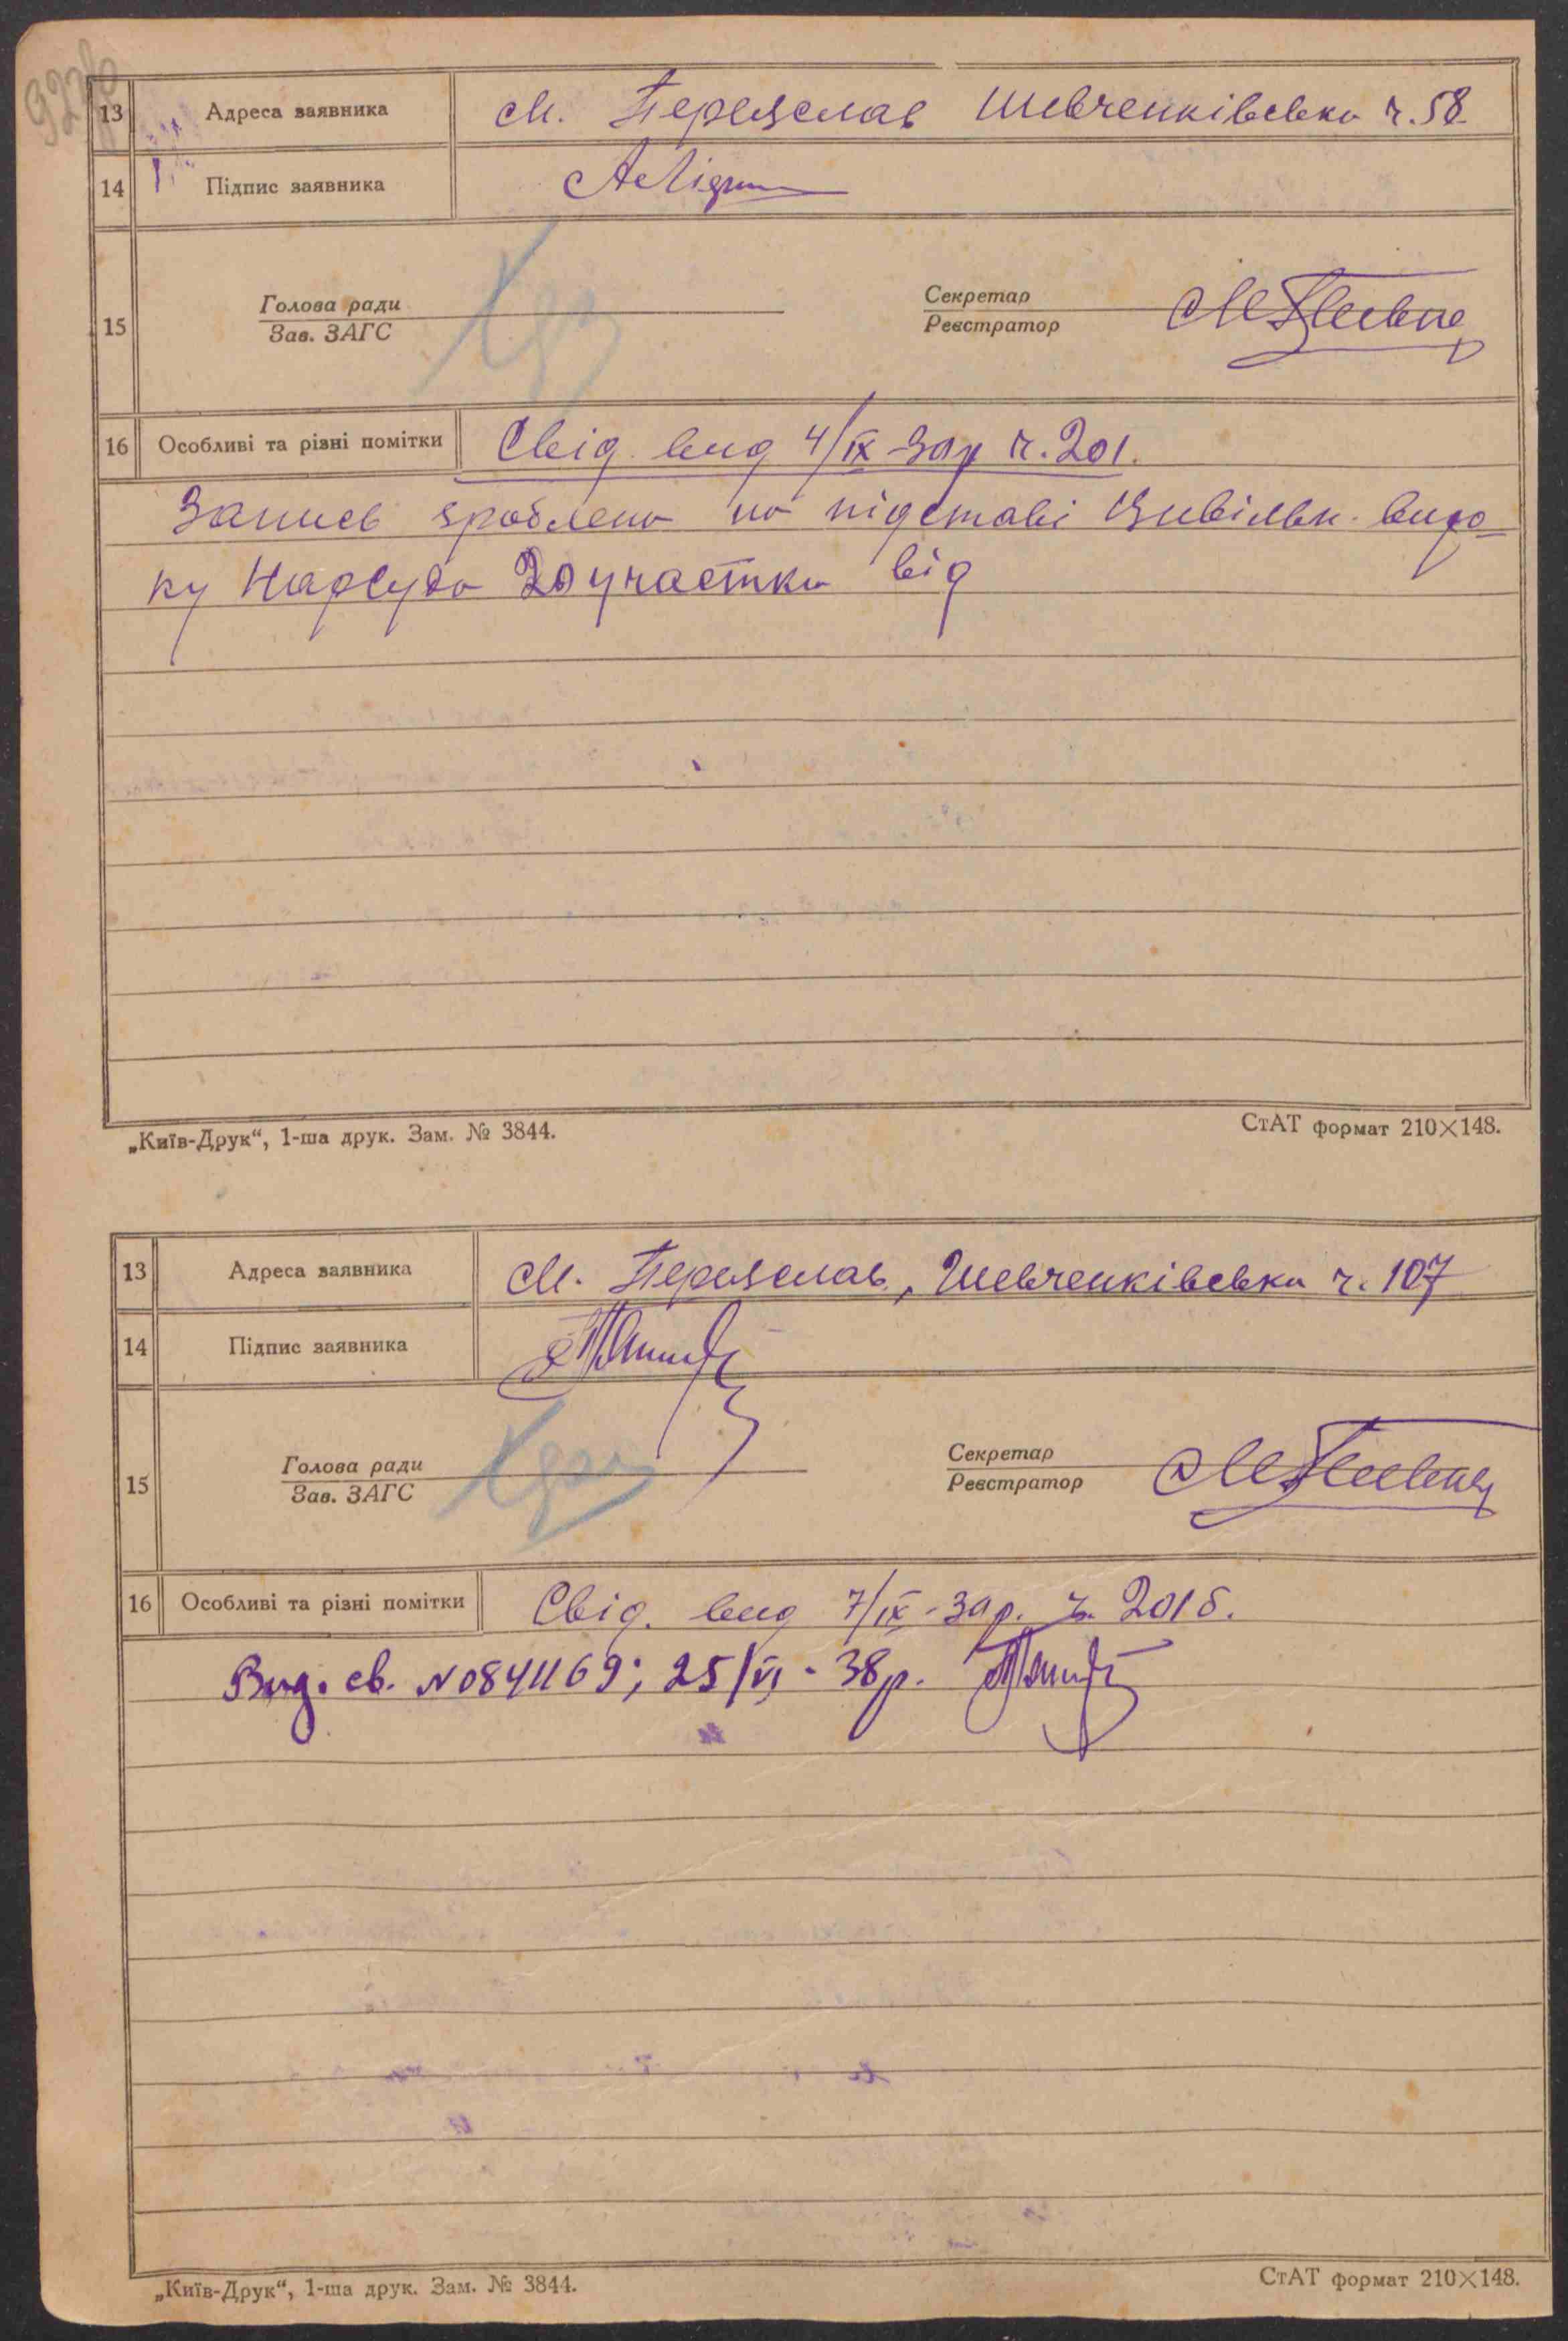 13 Адреса заявника м. Переяслав Шевченківська ч. 58
14 Підпис заявника
15 Голова ради Секретар
Зав. ЗАГС Реєстратор
16 Особливі та різні помітки Свід. вид 4/IX-Зар ч. 201.
Запись зроблено на підставі Цивільн. виро-
ку Нарсуда 20 участка від
„Київ-Друк“, 1-ша друк. Зам. № 3844. СтАТ формат 210×148.
13 Адреса заявника м. Переяслав, Шевченківська ч. 107
14 Підпис заявника
15 Голова ради Секретар
Зав. ЗАГС Реєстратор
16 Особливі та різні помітки Свід. вид 7/IX-Зар. ч. 2015.
Вид. св. № 0841169; 25/VI - 38 р.
„Київ-Друк“, 1-ша друк. Зам. № 3844. СтАТ формат 210×148.